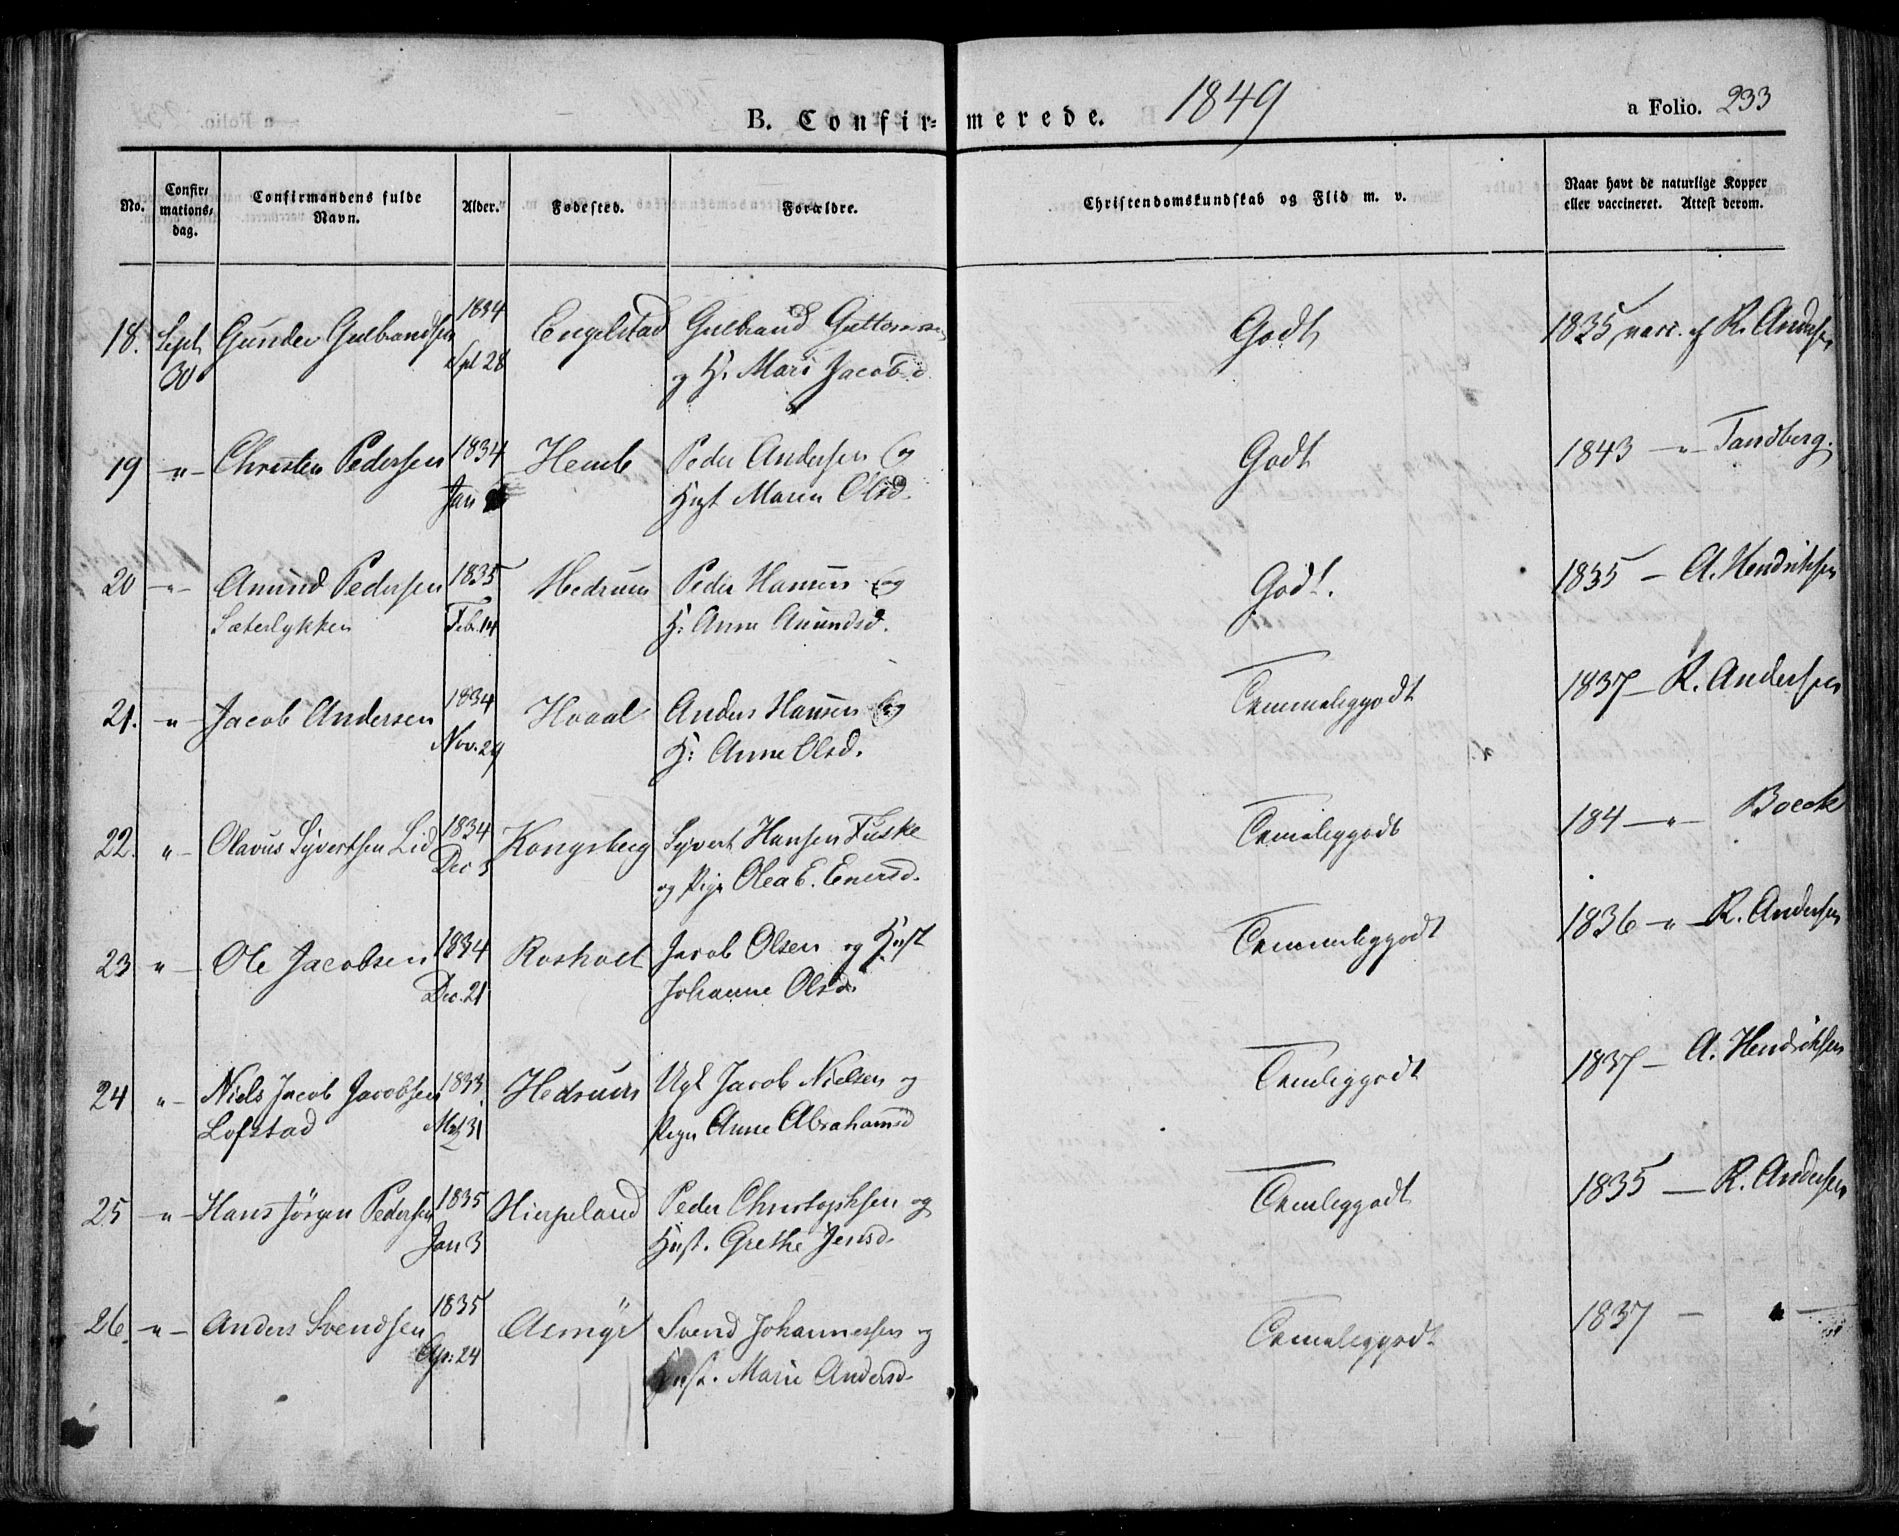 B. Confir= merede. 1849 a Folio. 233
No. Confir= mations= dag. Confirmandens fulde Navn. Alder. Fodested. Forældre. Christendomskundskab og Flid m. v. Naar havt de naturlige Kopper eller vaccineret. Attest derom.
18. Sept 30 Gunder Gulbrandsen 1834 Spt 28 Engelstad Gulbrand Guttormsen Godt 1835 vacc. af R. Andersen
og H. Mari Jacobsd
19 -"- Christen Pedersen 1834 Hemb Peder Andersen og Godt 1843 -"- Tandberg.
Jan Hust Maren Olsd.
20 -"- Amund Pedersen 1835 Hedrum Peder Hansen og Godt. 1835 - A. Hendriksen
Sæterlykken Feb. 14 H: Anne Amundsd.
21. -"- Jacob Andersen 1834 Hvaal Anders Hansen og Temmeliggodt 1837 - R. Andersen
Nov. 29 H: Anne Olsd.
22. "- Olavus Syvertsen Lid 1834 Kongsberg Syvert Hansen Fuske Temeliggodt 184 -"- Boeck
Dec 5 og Pige Olea E. Enersd.
23 "- Ole Jacobsen 1834 Rosholt Jacob Olsen og Hust Temmeliggodt 1836 -"- R. Andersen
Dec. 21 Johanne Olsd.
24 "- Niels Jacob Jacobsen 1833 Hedrum Ugk Jacob Nielsen og Temliggodt 1837 - A. Hendriksen
Lofstad 31 Pige Anne Abrahamsd
25 -"- Hans Jörgen Pedersen 1835 Hierpeland Peder Christophsen og Temliggodt 1835 - R. Andersen
Jan 3 Hust. Grethe Jensd.
26. -"- Anders Svendsen 1835 Asmyr Svend Johannessen og Temeliggodt 1837 - " -
Ap: 24 Hust. Marie Andersd.